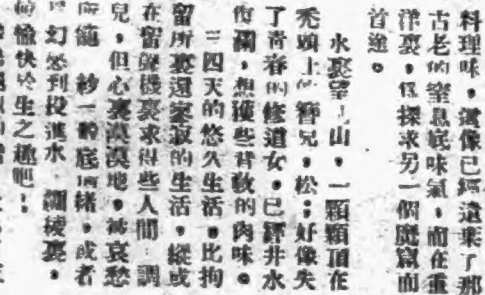 料理味，還像已經遺棄了那
古老的窒息底味氣，而在重
洋裏，怪探求另一個魔窟而
首途。
水裏望山，一顆顆頂在
禿頭上的簪兒，松；好像失
了青春的修道女，已
欄，想獲些背敎的肉味。
三四天的悠久生活，比拘
留所裏還寂的生活，縱或
在留聲機裏求得些人間調
兒，但心裏漠漠地，被哀愁
所籠 一般底情緒，或者
幻想到投進水 裏，
愉快於生之趣吧！